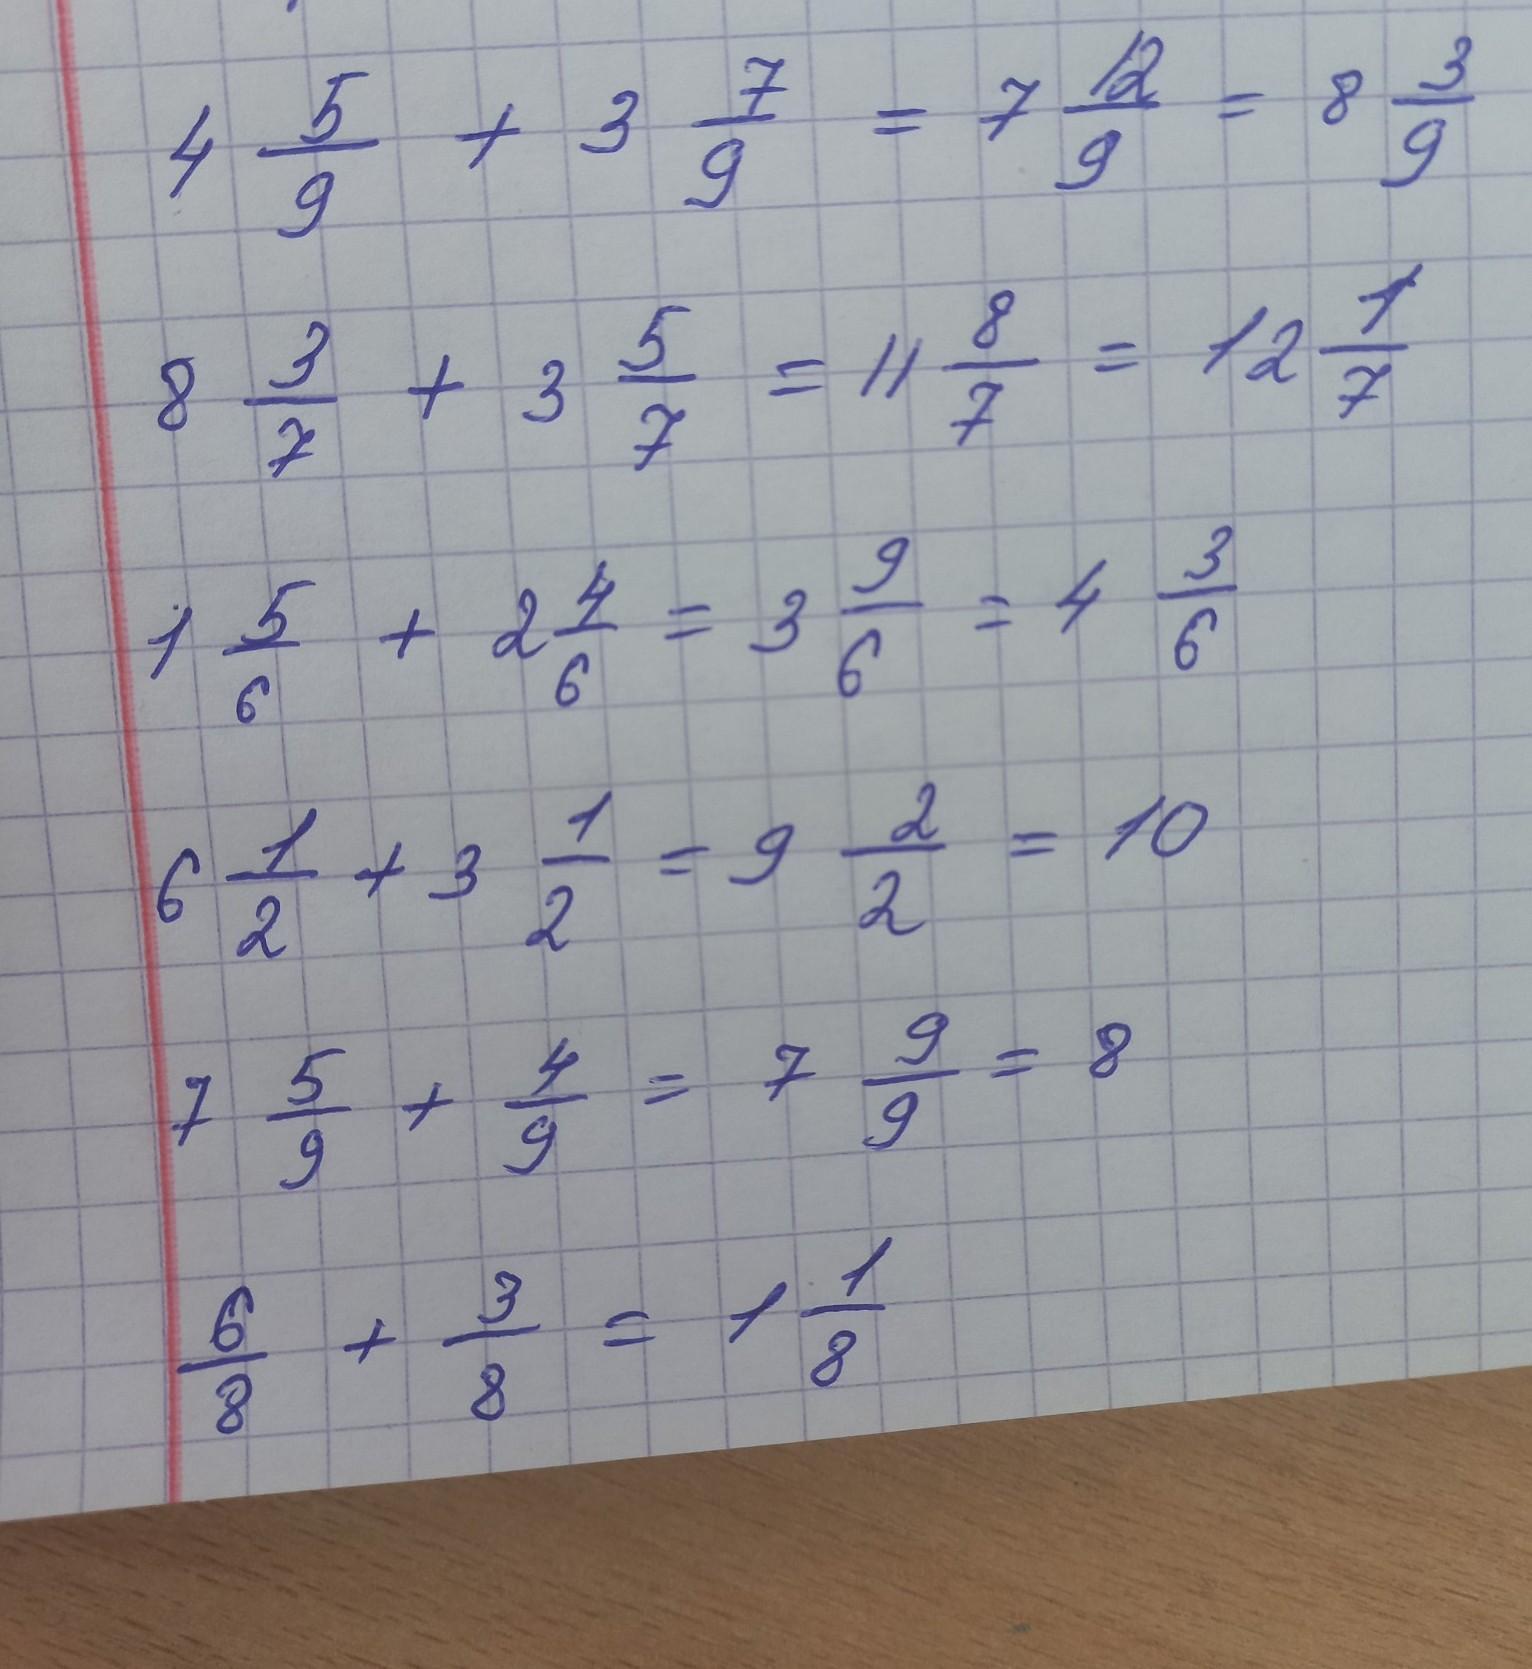 4 5/9 + 3 7/9 = 7 12/9 = 8 3/9
8 3/7 + 3 5/7 = 11 8/7 = 12 1/7
1 5/6 + 2 4/6 = 3 9/6 = 4 3/6
6 1/2 + 3 1/2 = 9 2/2 = 10
7 5/9 + 4/9 = 7 9/9 = 8
6/8 + 3/8 = 1 1/8